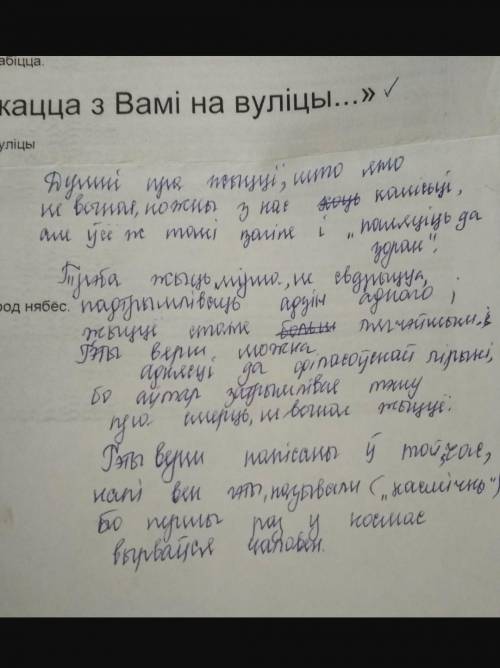 абіцца.
кацца з Вамі на вуліцы...» ✓
уліцы
Думкі пра жыцці, што яно
не вечнае, кожны з нас хоць калісьці,
але ўсё ж такі загіне і „паляціць да
зорак“.
Трэба жыць мірна, не сварыцца,
род нябес.
падтрымліваць адзін аднаго,
жыццё стане больш лягчэйшым.
Гэты верш можна
аднесці да філасоўскай лірыкі,
бо аўтар затрымлівае тэму
пра смерць, не вечнае жыццё.
Гэты верш напісаны ў той час,
калі век гэты называлі („касмічны“)
Бо першы раз у космас
вырваўся чалавек.